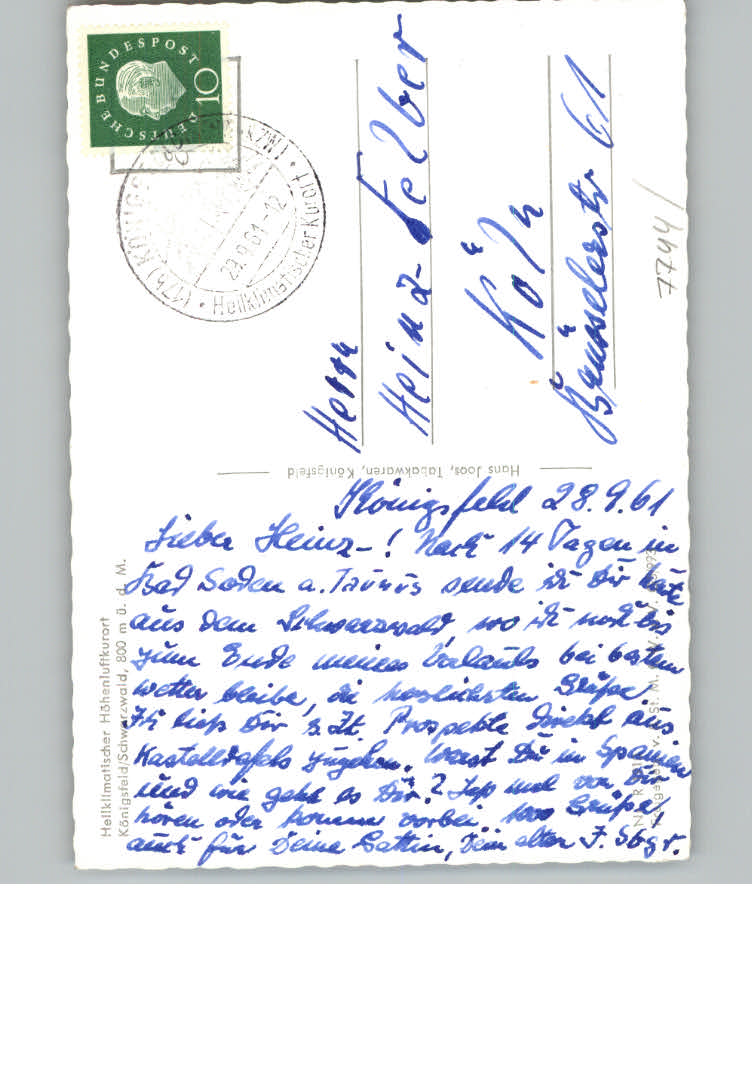 DEUTSCHE BUNDESPOST
10
(17b) KÖNIGSFELD (SCHWARZW)
29.9.61-12
Heilklimatischer Kurort
Herrn
Heinz Felber
Köln
Brüsselerstr 61
77244/
Hans Joos, Tabakwaren, Königsfeld
Heilklimatischer Höhenluftkurort
Königsfeld/Schwarzwald, 800 m ü. d. M.
Königsfeld 28.9.61
Lieber Heinz-! Nach 14 Tagen in
Bad Soden a. Taunus sende ich Dir heute
aus dem Schwarzwald, wo ich noch bis
zum Ende meines Urlaubs bei bestem
Wetter bleibe, die herzlichsten Grüße
Ich ließ Dir z. Zt. Prospekte direkt aus
zugehen. Warst Du in Spanien
und wie geht es Dir? Lass mal von Dir
hören oder komme vorbei 1000 Grüße,
auch für Deine Gattin, Dein alter J.